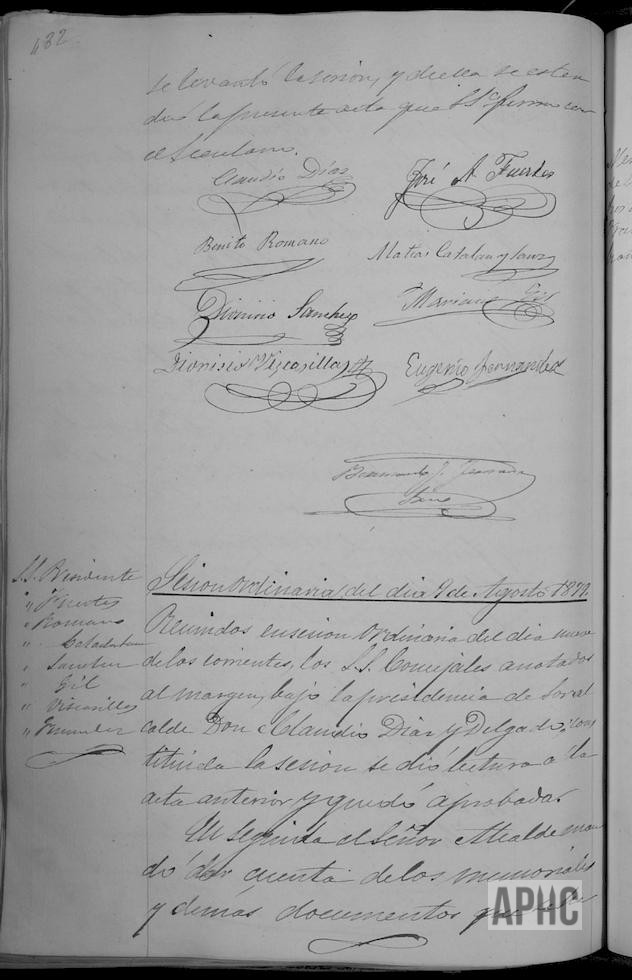 432
se levantó la sesion, y de ella se esten
dió la presente acta que S.S.ª firmo con
el Secretario.
Claudio Díaz
José A Fuertes
Benito Romano
Matias Catalan y Sanz
Dionisio Sanchez
Mariano Gil
Dionisio Viscasillas
Eugenio Fernandez
Sesion ordinaria del dia 9 de Agosto 1879.
S.S. Presidente
" Fuertes
" Romano
" Catalan
" Sanchez
" Gil
" Viscasillas
" Fernandez
Reunidos en sesion ordinaria del dia nueve
de los corrientes, los S.S. Concejales anotados
al margen, bajo la presidencia del Sor al
calde Don Claudio Diaz y Delgado, cons
tituida la sesion se dió lectura a la
acta anterior y quedó aprobada.
En seguida el Señor Alcalde man
dó dar cuenta de los memoriales
y demás documentos que
APHC